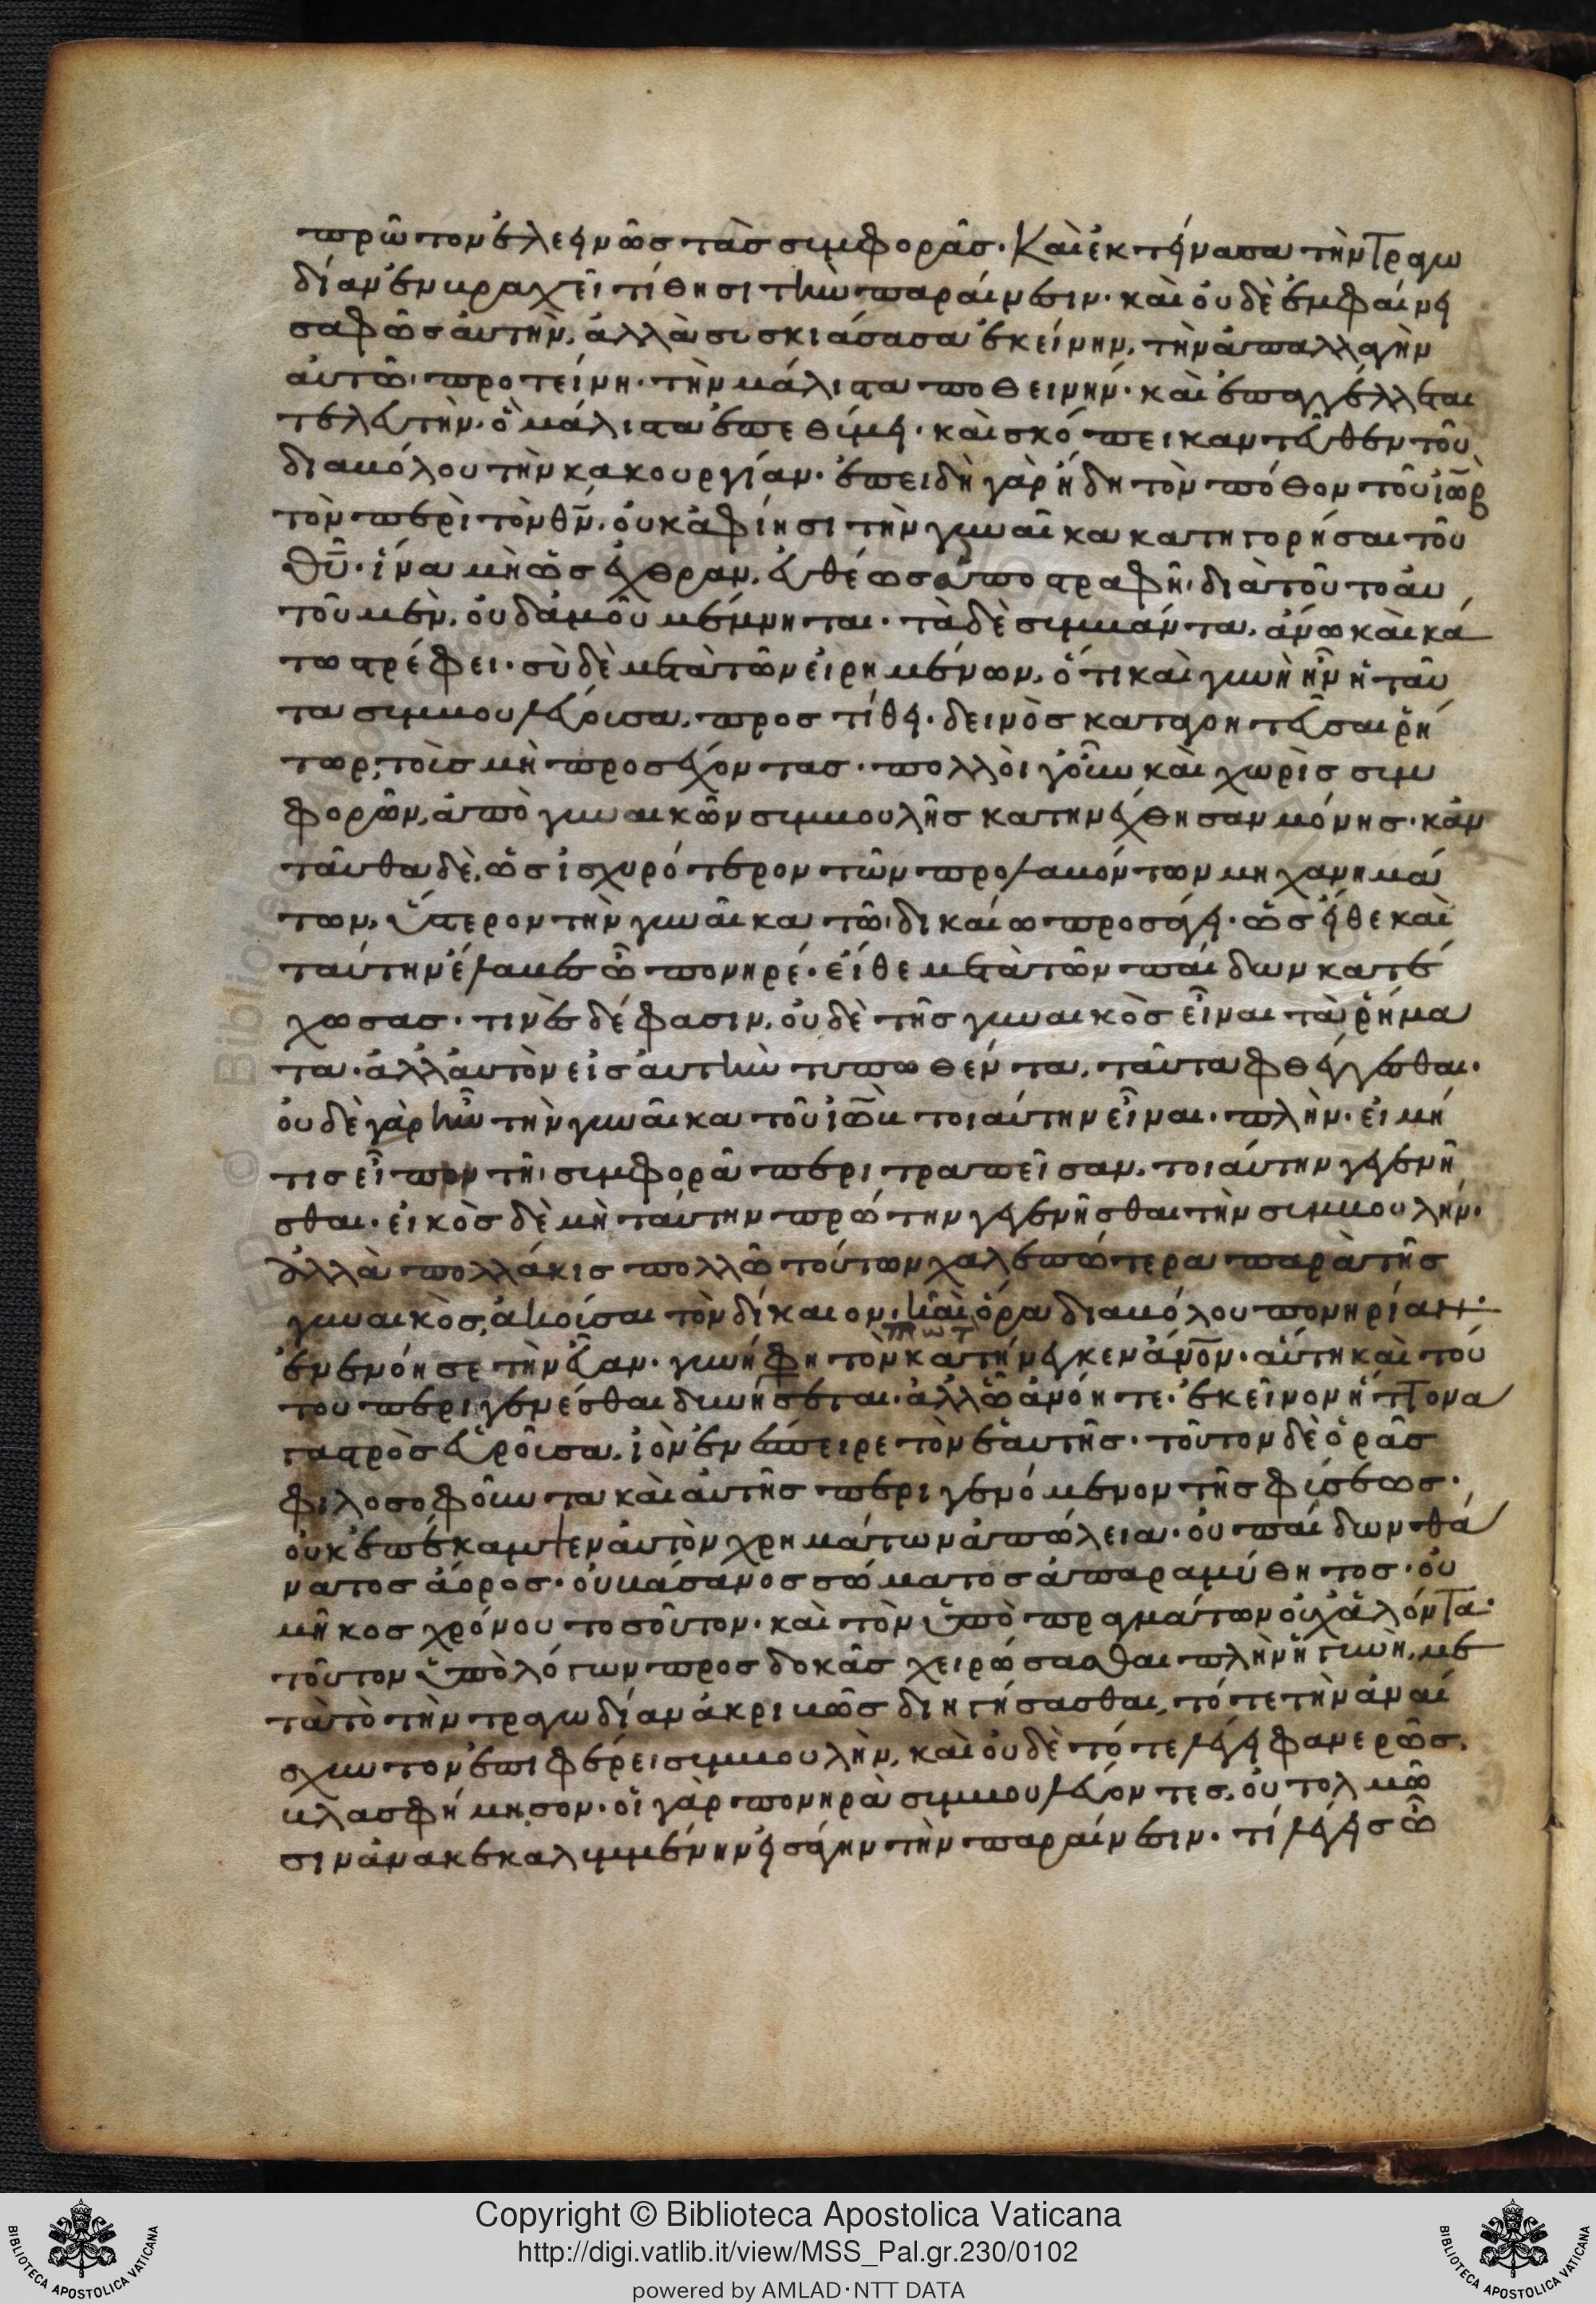 πρῶτον ἐλεεινῶς τὰς συμφοράς· Καὶ ἐκτείνασα τὴν τραγω
δίαν ἐν βραχεῖ τίθησι τὴν παραίνεσιν· καὶ οὐδὲ ἐμφαίνει
σαφῶς αὐτὴν, ἀλλὰ συσκιάσασα ἐκείνην, τὴν ἀπαλλαγὴν
αὐτῶ προτείνη· τὴν μάλιστα ποθεινήν· καὶ ἐπαγγέλλεται
τελευτὴν· ὃ μάλιστα ἐπεθύμει· καὶ σκόπει κἀντεῦθεν τοῦ
διαβόλου τὴν κακουργίαν· ἐπειδὴ γὰρ ἤδη τὸν πόθον τοῦ ἰὼβ
τὸν περὶ τὸν θν, οὐκ ἀφίησι τὴν γυναῖκα κατηγορῆσαι τοῦ
θυ· ἵνα μὴ ὡς ἐχθραν, εὐθέως ἀποστραφῆ· διὰ τοῦτο αὐ
τοῦ μὲν, οὐδαμοῦ μέμνηται· τὰ δὲ συμβάντα, ἄνω καὶ κά
τω στρέφει· σὺ δὲ μετὰ τῶν εἰρημένων, ὅτι καὶ γυνὴ ἦν ἡ ταῦ
τα συμβουλεύουσα, προστίθει· δεινὸς καταγοητεῦσαι ῥή
τωρ, τοὺς μὴ προσέχοντας· πολλοὶ γοῦν καὶ χωρὶς συμ
φορῶν, ἀπὸ γυναικῶν συμβουλῆς κατηνέχθησαν μόνης· κἀν
ταῦθα δὲ, ὡς ἰσχυρότερον τῶν προλαβόντων μηχανημά
των, ὕστερον τὴν γυναῖκα τῶ δικαίω προσάγει· ὡς εἴθε καὶ
ταύτην ἔλαβες ὦ πονηρέ· εἴθε μετὰ τῶν παίδων κατέ
χωσας· τινὲς δέ φασιν, οὐδὲ τῆς γυναικὸς εἶναι τὰ ῥήμα
τα· ἀλλ' αὐτὸν εἰς αὐτὴν τυπωθέντα, ταῦτα φθέγγεσθαι·
οὐδὲ γὰρ ἦν τὴν γυναῖκα τοῦ ἰὼβ τοιαύτην εἶναι· πλὴν· εἰ μή
τις εἴποι τῆ συμφορᾶ περιτραπεῖσαν, τοιαύτην γεγενῆ
σθαι· εἰκὸς δὲ μὴ ταύτην πρώτην γεγενῆσθαι τὴν συμβουλήν·
ἀλλὰ πολλάκις πολλῶ τούτων χαλεπώτερα παρὰ τῆς
γυναικὸς, ἀκοῦσαι τὸν δίκαιον· καὶ ὅρα διαβόλου πονηρίαν·
ἐνενόησε τὴν εὔαν· γυνή φη τὸν πρῶτ κατήνεγκεν ἄνον· αὕτη καὶ τού
του περιγενέσθαι δυνήσεται· ἀλλ' ὦ ἀνόητε· ἐκεῖνον ἥττονα
γαστρὸς εὑροῦσα, ἰὸν ἐνέσπειρε τὸν ἑαυτῆς· τοῦτον δὲ ὁρᾶς
φιλοσοφοῦντα καὶ αὐτῆς περιγενόμενον τῆς φύσεως·
οὐκ ἐπέκαμψεν αὐτὸν χρημάτων ἀπώλεια· οὐ παίδων θά
νατος ἄωρος· οὐ βάσανος σώματος ἀπαραμύθητος· οὐ
μῆκος χρόνου τοσοῦτον· καὶ τὸν ὑπὸ πραγμάτων οὐχ ἁλόντα·
τοῦτον ὑπὸ λόγων προσδοκᾶς χειρώσασθαι πλὴν ἡ γυνὴ, με
τὰ τὸ τὴν τραγωδίαν ἀκριβῶς διηγήσασθαι, τότε τὴν ἀναί
σχυντον ἐπιφέρει συμβουλὴν, καὶ οὐδὲ τότε λέγει φανερῶς,
βλασφήμησον· οἱ γὰρ πονηρὰ συμβουλεύοντες, οὐ τολμῶ
σιν ἀνακεκαλυμμένην εἰσάγειν τὴν παραίνεσιν· τί λέγεις ὦ
Copyright © Biblioteca Apostolica Vaticana
http://digi.vatlib.it/view/MSS_Pal.gr.230/0102
powered by AMLAD·NTT DATA